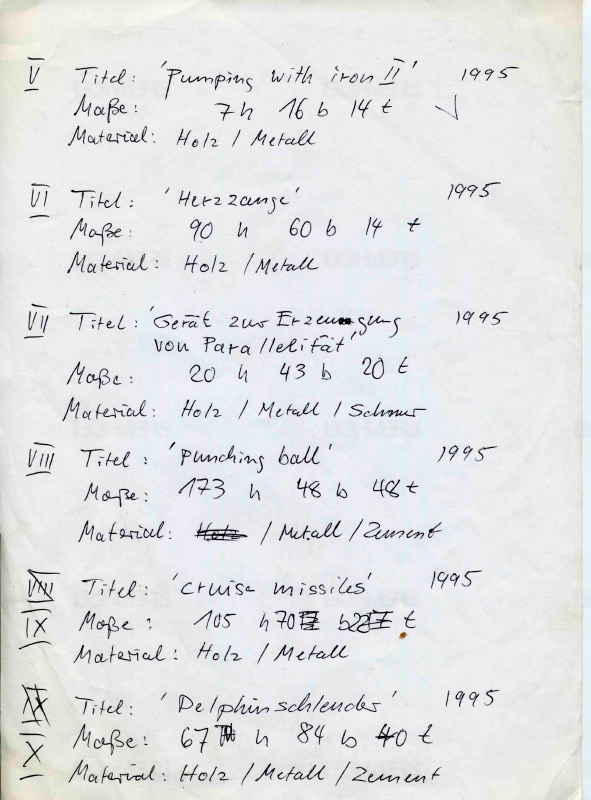 V Titel: 'Pumping with iron II' 1995
Maße: 7 h 16 b 14 t
Material: Holz / Metall
VI Titel: 'Herzzange' 1995
Maße: 90 h 60 b 14 t
Material: Holz / Metall
VII Titel: 'Gerät zur Erzeugung 1995
von Parallelität'
Maße: 20 h 43 b 20 t
Material: Holz / Metall / Schnur
VIII Titel: 'Punching ball' 1995
Maße: 173 h 48 b 48 t
Material: Holz / Metall / Zement
VIII Titel: 'Cruise missiles' 1995
IX Maße: 105 h 70 b t
Material: Holz / Metall
Titel: 'Delphinschleuder' 1995
X Maße: 67 h 84 b 40 t
Material: Holz / Metall / Zement